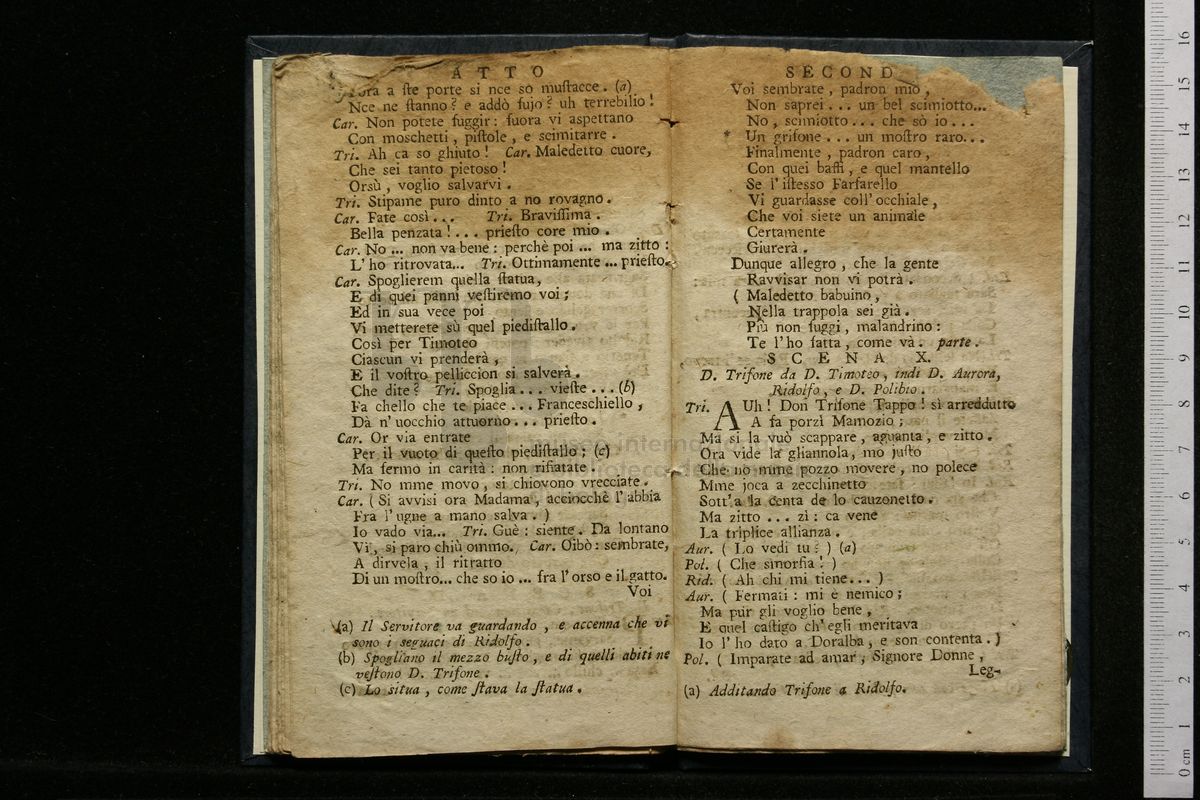 ATTO
a ſte porte si nce so muſtacce. (a)
Nce ne ſtanno? e addò fujo? uh terrebilio!
Car. Non potete fuggir: fuora vi aspettano
Con moschetti, piſtole, e scimitarre.
Tri. Ah ca so ghiuto! Car. Maledetto cuore,
Che sei tanto pietoso!
Orsù, voglio salvarvi.
Tri. Stipame puro dinto a no rovagno.
Car. Fate così... Tri. Braviſſima.
Bella penzata!... prieſto core mio.
Car. No ... non va bene: perchè poi ... ma zitto:
L'ho ritrovata... Tri. Ottimamente ... prieſto.
Car. Spoglierem quella ſtatua,
E di quei panni veſtiremo voi;
Ed in sua vece poi
Vi metterete sù quel piediſtallo.
Così per Timoteo
Ciascun vi prenderà,
E il voſtro pelliccion si salverà.
Che dite? Tri. Spoglia... vieſte... (b)
Fa chello che te piace... Franceschiello,
Dà n'uocchio attuorno... prieſto.
Car. Or via entrate
Per il vuoto di queſto piediſtallo: (c)
Ma fermo in carità: non rifiatate.
Tri. No mme movo, si chiovono vrecciate.
Car. (Si avvisi ora Madama, acciocchè l'abbia
Fra l'ugne a mano salva.)
Io vado via... Tri. Guè: siente. Da lontano
Vi, si paro chiù ommo. Car. Oibò: sembrate,
A dirvela, il ritratto
Di un moſtro... che so io ... fra l'orso e il gatto.
Voi
(a) Il Servitore va guardando, e accenna che vi
sono i seguaci di Ridolfo.
(b) Spogliano il mezzo buſto, e di quelli abiti ne
veſtono D. Trifone.
(c) Lo situa, come ſtava la ſtatua.
SECOND
Voi sembrate, padron mio,
Non saprei... un bel scimiotto...
No, scimiotto... che sò io...
* Un grifone... un moſtro raro...
Finalmente, padron caro,
Con quei baffi, e quel mantello
Se l'iſtesso Farfarello
Vi guardasse coll'occhiale,
Che voi siete un animale
Certamente
Giurerà.
Dunque allegro, che la gente
Ravvisar non vi potrà.
( Maledetto babuino,
Nella trappola sei già.
Più non fuggi, malandrino:
Te l'ho fatta, come và. parte.
SCENA X.
D. Trifone da D. Timoteo, indi D. Aurora,
Ridolfo, e D. Polibio.
Tri. AUh! Don Trifone Tappo! sì arreddutto
A fa porzì Mamozio;
Ma si la vuò scappare, aguanta, e zitto.
Ora vide la gliannola, mo juſto
Che nò mme pozzo movere, no polece
Mme joca a zecchinetto
Sott'a la centa de lo cauzonetto.
Ma zitto ... zì: ca vene
La triplice allianza.
Aur. ( Lo vedi tu? ) (a)
Pol. ( Che smorfia! )
Rid. ( Ah chi mi tiene... )
Aur. ( Fermati: mi è nemico;
Ma pur gli voglio bene,
E quel caſtigo ch'egli meritava
Io l'ho dato a Doralba, e son contenta. )
Pol. ( Imparate ad amar, Signore Donne,
Leg-
(a) Additando Trifone a Ridolfo.